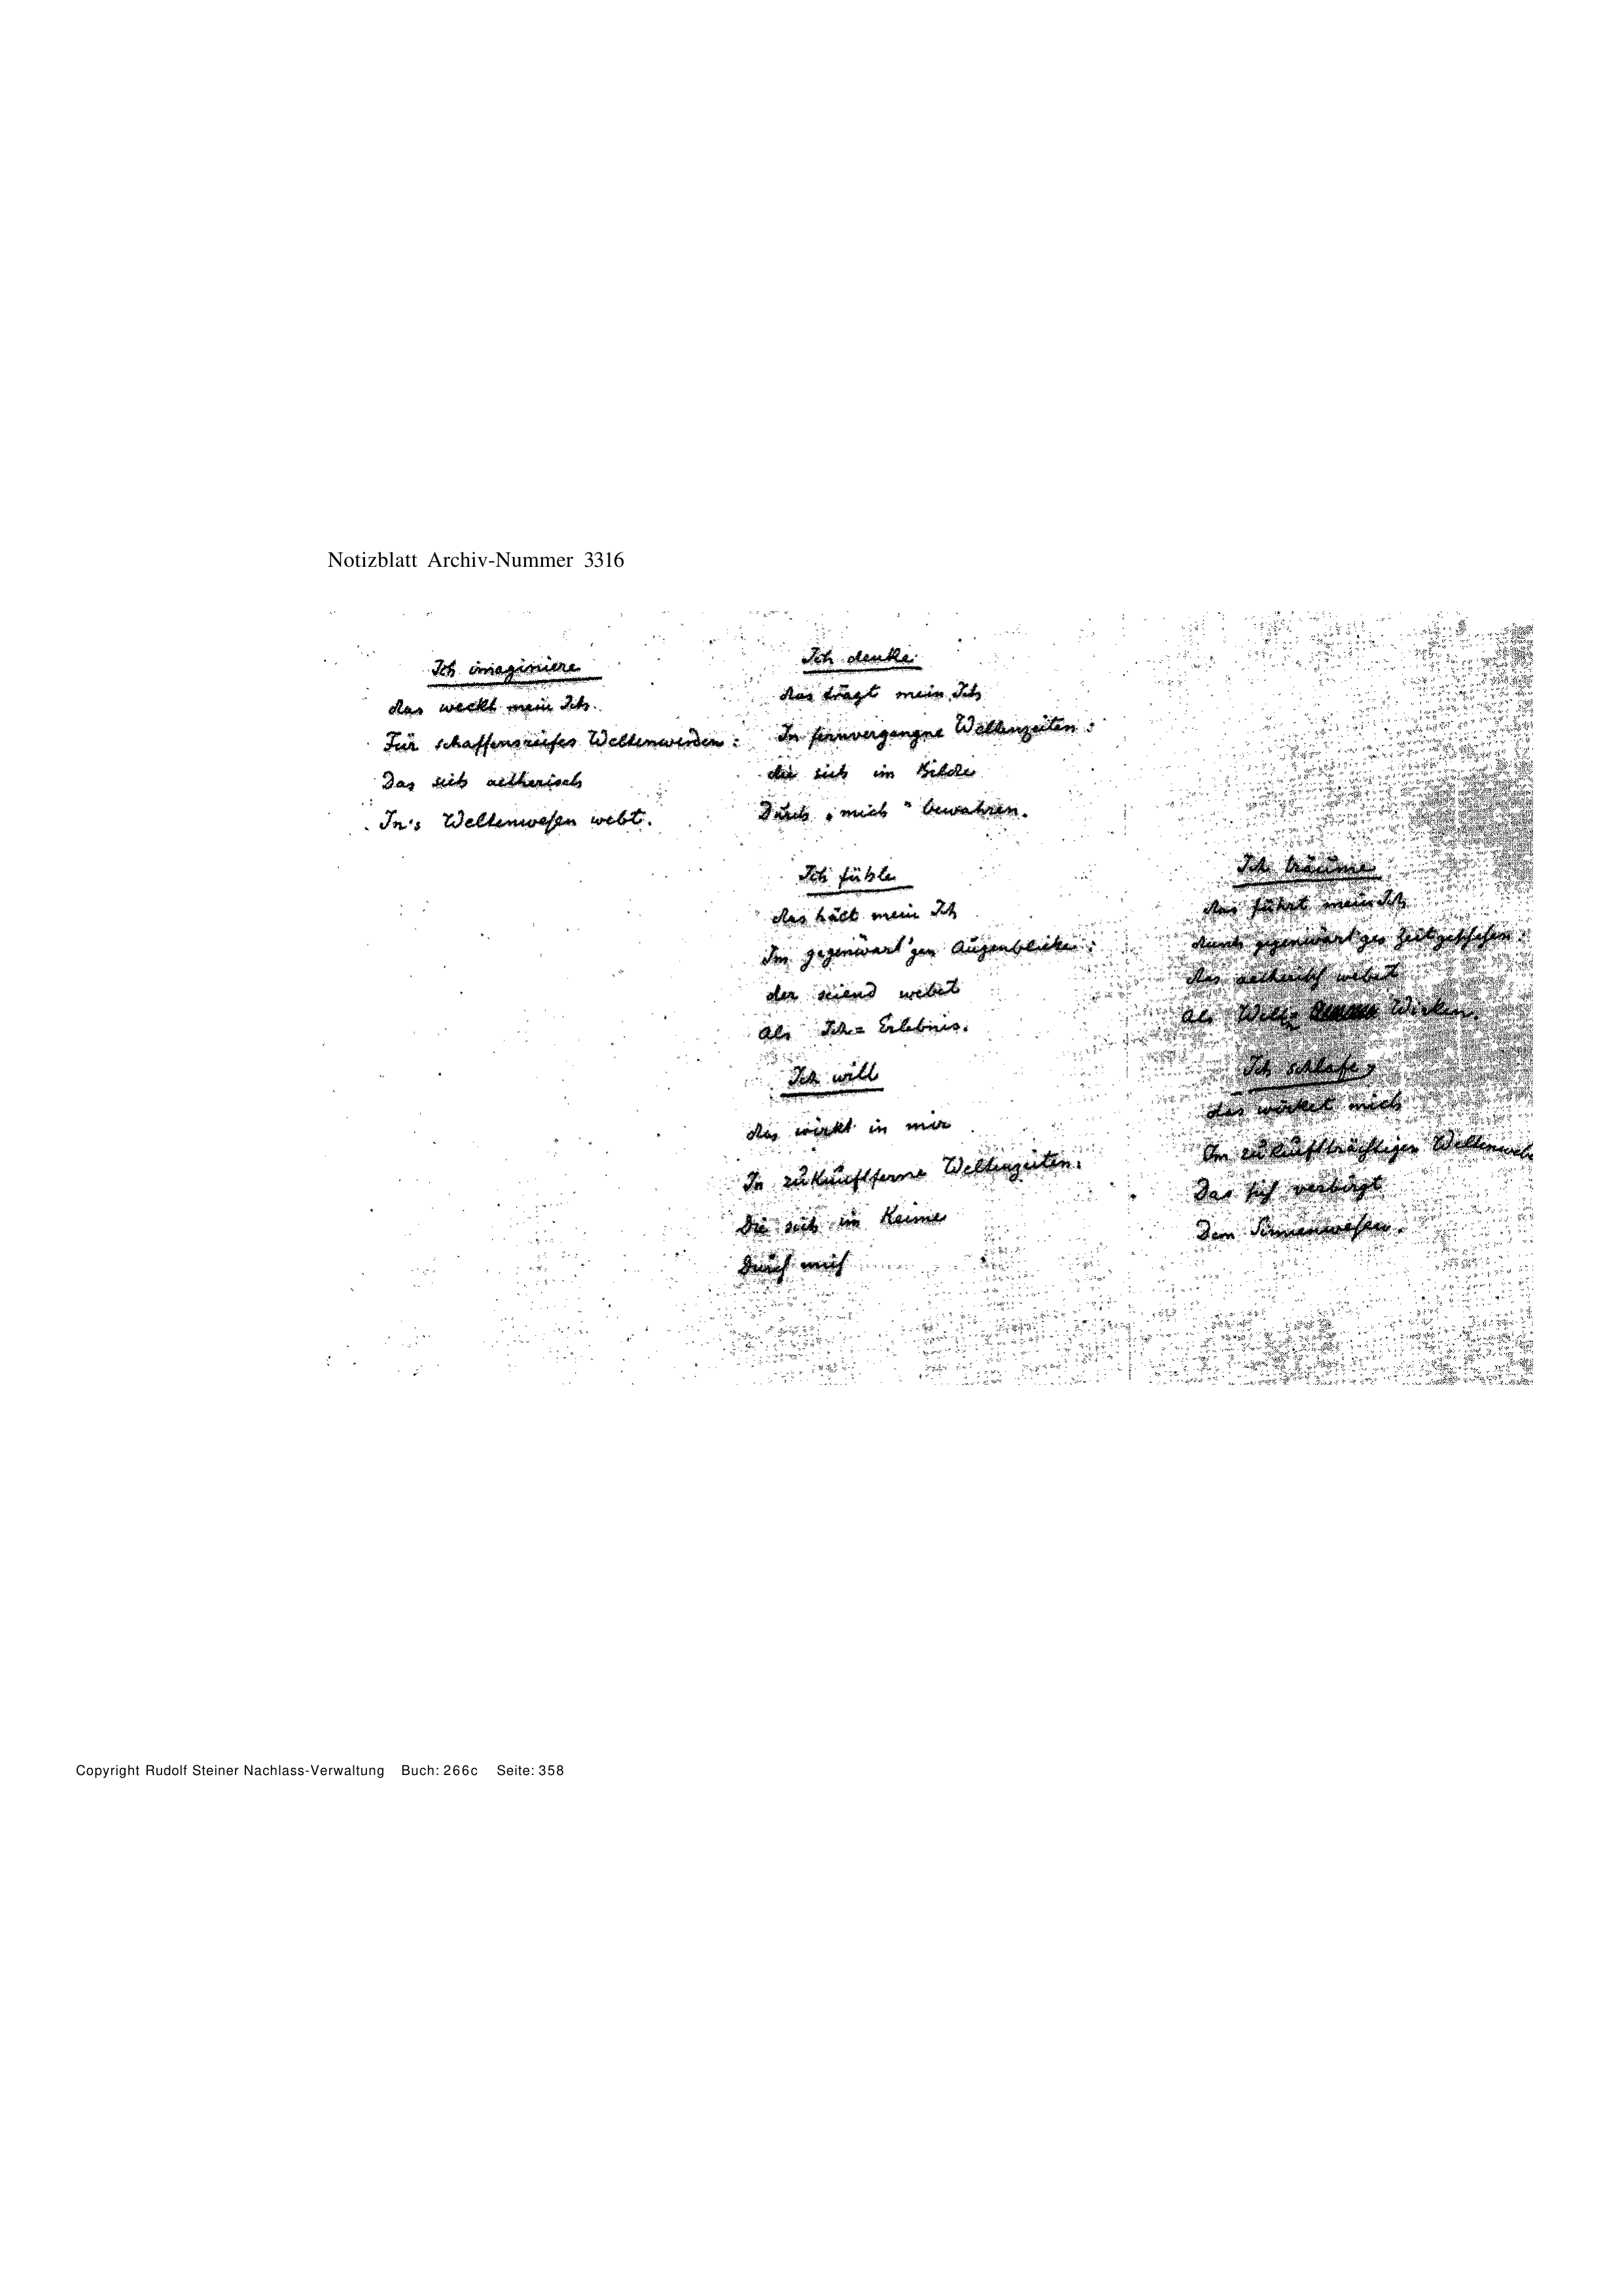 Notizblatt Archiv-Nummer 3316
Ich imaginiere
das weckt mein Ich.
Für schaffensreifes Weltenwerden:
Das sich aetherisch
In's Weltenwesen webt.
Ich denke
das trägt mein Ich
In fernvergangne Weltenzeiten:
die sich im Bilde
Durch „mich" bewahren.
Ich fühle
das hält mein Ich
Im gegenwärt'gen Augenblicke:
der seiend webet
Als Ich=Erlebnis.
Ich will
das wirkt in mir
In zukunftferne Weltenzeiten:
Die sich im Keime
Durch mich
Ich träume
das führt mein Ich
durch gegenwärt'ges Zeitgeschehen:
das aetherisch webet
Als Wirken.
Ich schlafe,
das wirket mich
Im zukunftträchtigen
Das sich verbirgt
Dem Sinnenwesen.
Copyright Rudolf Steiner Nachlass-Verwaltung Buch: 266c Seite: 358